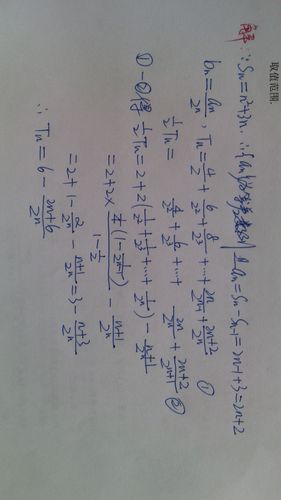 取值范围.
解: ∵Sn=n²+3n. ∴{an}为等差数列 且an=Sn-Sn-1=2n-1+3=2n+2
bn=an/2^n, Tn=4/2+6/2²+8/2³+…+2n/2^(n-1)+(2n+2)/2^n ①
½Tn= 4/2²+6/2³+…+ 2n/2^n+(2n+2)/2^(n+1) ②
①-②得 ½Tn=2+2(1/2²+1/2³+…+1/2^n)-(n+1)/2^n
=2+2×¼(1-1/2^(n-1))/(1-½)-(n+1)/2^n
=2+1-2/2^n-(n+1)/2^n=3-(n+3)/2^n
∴Tn=6-(2n+6)/2^n